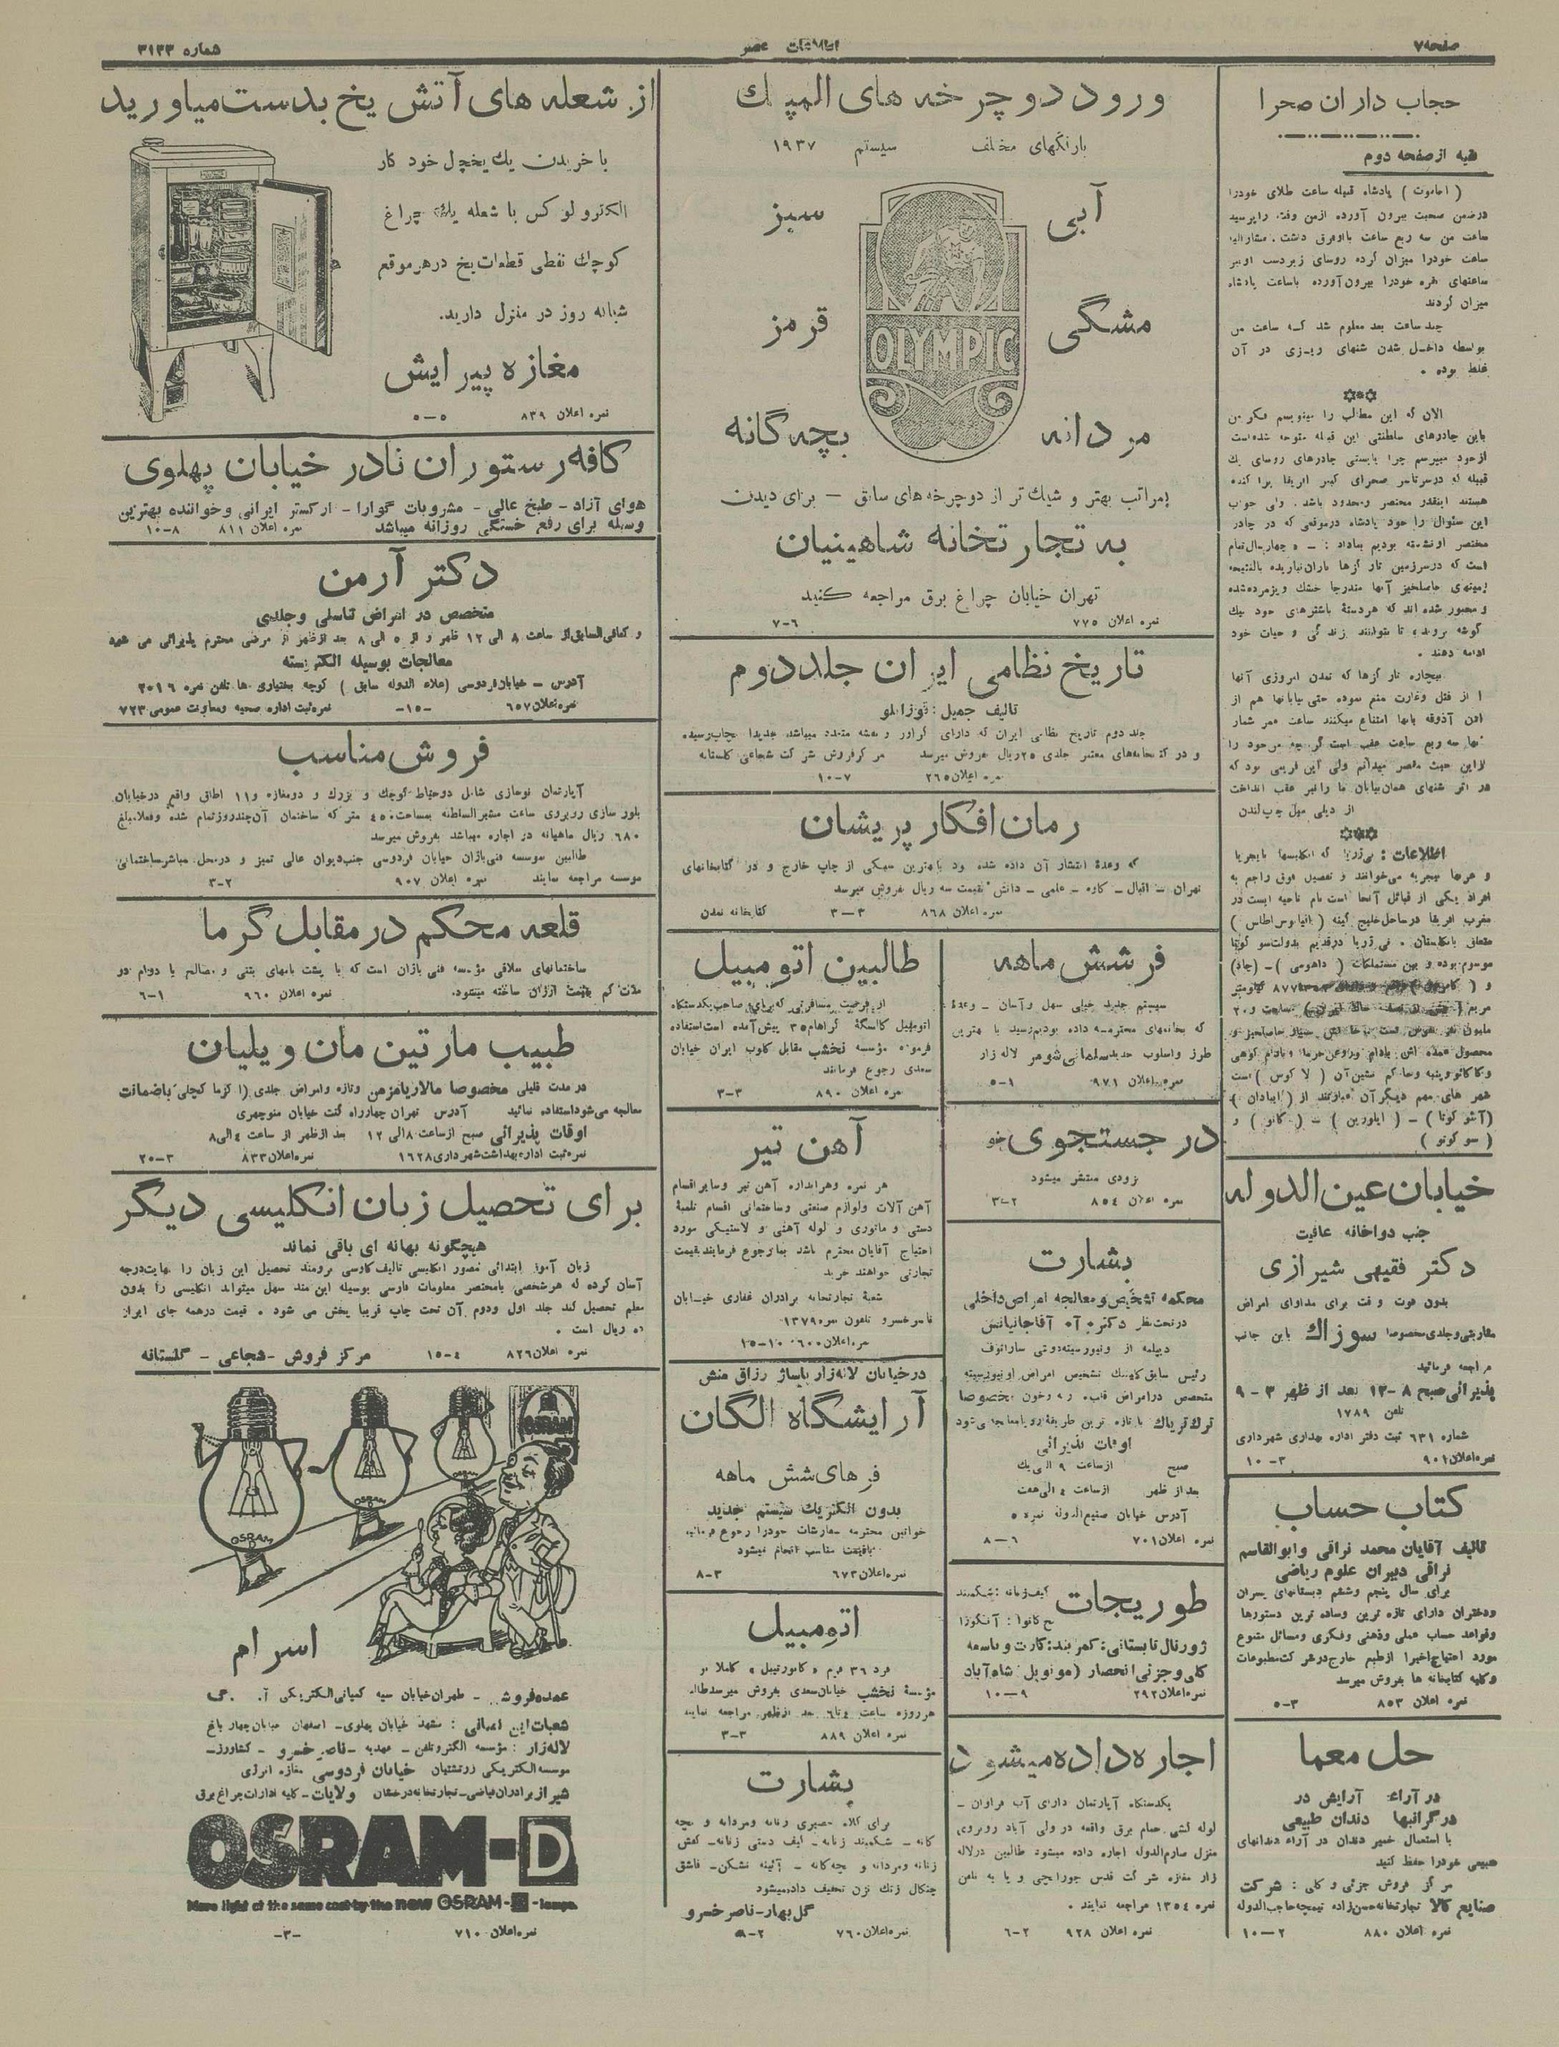 صفحه ۷
اطلاعات عصر
شماره ۳۱۳۳
حجاب داران صحرا
بقیه از صفحه دوم
( اخاموت ) پادشاه قبیله ساعت طلای خودرا
درضمن صحبت بیرون آورده ازمن وقت را پرسید
ساعت من سه ربع ساعت با او فرق داشت .
ساعت خودرا میزان کرده روسای زیردست او نیز
ساعتهای نقره خودرا بیرون آورده باساعت پادشاه
میزان کردند
چند ساعت بعد معلوم شد که ساعت من
بواسطه داخل شدن شنهای ریزی در آن
غلط بوده .
الان که این مطالب را مینویسم فکر من
باین چادرهای سلطنتی این قبیله متوجه شده است
ازخود میپرسم چرا بایستی چادرهای روسای یک
قبیله که درسرتاسر صحرای کبیر افریقا پراکنده
هستند اینقدر مختصر ومحدود باشد . ولی جواب
این سئوال را خود پادشاه درموقعی که در چادر
مختصر او نشسته بودیم بماداد : ـ ۵ چهار سال تمام
است که درسرزمین تار گزها باران نباریده بالنتیجه
زمینهای حاصلخیز آنها متدرجا خشک وپژمرده شده
و مجبور شده اند که هردسته باشترهای خود بیک
گوشه بروند تا بتوانند زندگی و حیات خود
ادامه دهند .
بیچاره تار گزها که تمدن امروزی آنها
را از قتل وغارت منع نموده حتی بیابانها هم از
دادن آذوقه بآنها امتناع میکنند ساعت عمر شمار
آنها سه ربع ساعت عقب است گرچه من خود را
ازاین حیث مقصر میدانم ولی این فریبی بود که
در اثر شنهای همان بیابان ما را نیز عقب انداخت
از دیلی میل چاپ لندن
اطلاعات : نیژریا که انگلیسها نایجریا
و عربها نیجریه می‌خوانند و تفصیل فوق راجع به
افراد یکی از قبائل آنجا است نام ناحیه ایست در
مغرب افریقا درساحل خلیج گینه ( اقیانوس اطلس )
متعلق بانگلستان . نیژریا درقدیم بدولت سو کوتا
موسوم بوده و بین مستملکات ( داهومی ) ـ (چاد)
محصول عمده اش بادام وروغن خرما وبادام کوهی
وکاکائو وپنبه وحاکم نشین آن ( لاگوس ) است
شهر های مهم دیگر آن عبارتند از ( ایبادان )
(آبئو کوتا ) ـ ( ایلورین ) ـ ( کانو ) و
( سو کوتو )
خیابان عین الدوله
جنب دواخانه عافیت
دکتر فقیهی شیرازی
بدون فوت وقت برای مداوای امراض
مقاربتی وجلدی مخصوصا سوزاک باین جانب
مراجعه فرمائید
پذیرائی صبح ۸ -۱۲ بعد از ظهر ۳ - ۹
تلفن ۱۷۸۹
شماره ۶۳۱ ثبت دفتر اداره بهداری شهرداری
نمره اعلان ۹۰۱ ۳- ۱۰
کتاب حساب
تالیف آقایان محمد نراقی وابوالقاسم
نراقی دبیران علوم ریاضی
برای سال پنجم وششم دبستانهای پسران
ودختران دارای تازه ترین وساده ترین دستورها
وقواعد حساب عملی وذهنی وفکری ومسائل متنوع
مورد احتیاج اخیرا ازطبع خارج درشرکت مطبوعات
وکلیه کتابخانه ها بفروش میرسد
نمره اعلان ۸۵۳ ۳-۵
حل معما
در آراء: آرایش در
درگرانبها دندان طبیعی
با استعمال خمیر دندان در آراء دندانهای
طبیعی خودرا حفظ کنید
مرکز فروش جزئی و کلی : شرکت
صنایع کالا تجارتخانه حسن زاده تیمچه حاجب الدوله
نمره اعلان ۸۸۰ ۲-۱۰
ورود دوچرخه های المپیک
بارنگهای مختلف سیستم ۱۹۳۷
آبی سبز
مشگی قرمز
OLYMPIC
مردانه بچه گانه
بمراتب بهتر و شیک تر از دوچرخه های سابق — برای دیدن
به تجارتخانه شاهینیان
تهران خیابان چراغ برق مراجعه کنید
نمره اعلان ۷۷۵ ۶-۷
تاریخ نظامی ایران جلد دوم
تالیف جمیل قوزانلو
جلد دوم تاریخ نظامی ایران که دارای گراور و نقشه متعدد میباشد جدیدا بچاپ رسیده
و در کتابخانه‌های معتبر جلدی ۲۵ریال بفروش میرسد مرکز فروش شرکت شجاعی گلستانه
نمره اعلان ۲۶۵ ۷-۱۰
رمان افکار پریشان
که وعدهٔ انتشار آن داده شده بود بابهترین سبکی از چاپ خارج و در کتابخانهای
تهران ـ اقبال ـ کاوه ـ علمی ـ دانش بقیمت سه ریال بفروش میرسد
نمره اعلان ۸۶۸ ۳-۳ کتابخانه تمدن
فرشش ماهه
سیستم جدید خیلی سهل وآسان ـ وعدهٔ
که بخانمهای محترمه داده بودیم رسید با بهترین
طرز واسلوب جدید سلمانی شوهر لاله زار
نمره اعلان ۹۷۱ ۱-۵
در جستجوی خو
بزودی منتشر میشود
نمره اعلان ۸۵۴ ۲-۳
بشارت
محکمه تشخیص ومعالجه امراض داخلی
درتحت نظر دکتر آقاجانیانس
دیپلمه از ونیورسیته دولتی ساراتوف
رئیس سابق کلینیک تشخیص امراض اونیورسیته
متخصص درامراض قلب. ریه وخون مخصوصا
ترک تریاک باتازه ترین طریقه اروپا معالجه میشود
اوقات پذیرائی
صبح ازساعت ۹ الی یک
بعد از ظهر ازساعت ۴ الی هفت
آدرس خیابان صنیع الدوله نمره ۵
نمره اعلان ۷۰۱ ۶-۸
طوریجات
کیف زنانه : شکمبند
ژورنال تابستانی: کمربند: کارت وباسمه
کلی وجزئی انحصار (مونوپل) شاه آباد
نمره اعلان ۲۹۲ ۹-۱۰
اجاره داده میشود
یکدستگاه آپارتمان دارای آب فراوان ـ
لوله کشی حمام برق واقعه درولی آباد روبروی
منزل صارم الدوله اجاره داده میشود طالبین درلاله
زار مغازه شرکت قدس جورابچی و یا به تلفن
نمره ۱۳۵۴ مراجعه نمایند .
نمره اعلان ۹۲۸ ۲-۶
طالبین اتومبیل
از فرصت مسافرتی که برای صاحب یکدستگاه
اتومبیل کاسگهٔ گراهام ۳۵ پیش آمده است استفاده
فرموده مؤسسه نخشب مقابل کلوب ایران خیابان
سعدی رجوع فرمایند
نمره اعلان ۸۹۰ ۳-۳
آهن تیر
هر نمره وهراندازه آهن تیر وسایر اقسام
آهن آلات ولوازم صنعتی وساختمانی اقسام تلمبهٔ
دستی و ماتوری و لوله آهنی و لاستیکی مورد
احتیاج آقایان محترم باشد بما رجوع فرمایند بقیمت
تجارتی خواهند خرید
شعبهٔ تجارتخانه برادران غفاری خیابان
ناصرخسرو تلفون نمره ۱۳۷۹
نمره اعلان ۶۰۰ ۱۰-۱۵
درخیابان لاله زار پاساژ رزاق منش
آرایشگاه الگان
فرهای شش ماهه
بدون الکتریک سیستم جدید
خوانین محترمه سفارشات خودرا رجوع فرمائید
باقیمت مناسب انجام میشود
نمره اعلان ۶۷۳ ۳-۸
اتومبیل
فرد ۳۶ فرم و کامورتیبل و کاملا نو
مؤسسهٔ نخشب خیابان سعدی بفروش میرسد طالبین
هرروزه ساعت ۴ تا ۶ بعد ازظهر مراجعه نمایند
نمره اعلان ۸۸۹ ۳-۳
بشارت
برای کلاه حصیری زنانه ومردانه و بچه
گانه ـ شکمبند زنانه ـ کیف دستی زنانه ـ کفش
زنانه ومردانه و بچه گانه ـ آئینه نشکن ـ قاشق
چنگال زنگ نزن تخفیف داده میشود
گل بهار-ناصرخسرو
نمره اعلان ۷۶۰
از شعله های آتش یخ بدست میاورید
با خریدن یک یخچال خود کار
الکترولوکس با شعله یک چراغ
کوچک نفطی قطعات یخ در هر موقع
شبانه روز در منزل دارید.
مغازه پیرایش
نمره اعلان ۸۳۹ ۵-۵
کافه رستوران نادر خیابان پهلوی
هوای آزاد ـ طبخ عالی ـ مشروبات گوارا ـ ارکستر ایرانی وخواننده بهترین
وسیله برای رفع خستگی روزانه میباشد نمره اعلان ۸۱۱ ۸-۱۰
دکتر آرمن
متخصص در امراض تناسلی وجلدی
و کمافی السابق از ساعت ۸ الی ۱۲ ظهر و از ۵ الی ۸ بعد ازظهر از مرضی محترم پذیرائی می شود
معالجات بوسیله الکتریسته
آدرس ـ خیابان فردوسی (علاء الدوله سابق ) کوچه بختیاری ها تلفن نمره ۲۰۱۶
نمره اعلان ۶۵۷ -۱۵- نمره ثبت اداره صحیه ومعاونت عمومی ۷۲۳
فروش مناسب
آپارتمان نوسازی شامل دوحیاط کوچک و بزرگ و دومغازه و۱۱ اطاق واقع درخیابان
بلور سازی روبروی ساعت مشیرالسلطنه بمساحت ۴۵۰ متر که ساختمان آن چندروز تمام شده وفعلا مبلغ
۶۸۰ ریال ماهیانه در اجاره میباشد بفروش میرسد
طالبین بموسسه فنی باژان خیابان فردوسی جنب دیوان عالی تمیز و درمحل بمباشر ساختمانی
موسسه مراجعه نمایند نمره اعلان ۹۰۷ ۲-۳
قلعه محکم در مقابل گرما
ساختمانهای سلاقی مؤسسه فنی باژان است که با پشت بامهای بتنی و مصالح با دوام در
مدت کم بقیمت ارزان ساخته میشود. نمره اعلان ۹۶۰ ۱-۶
طبیب مارتین مان ویلیان
در مدت قلیلی مخصوصا مالاریا مزمن وتازه وامراض جلدی (اکزما کچلی) باضمانت
معالجه می‌شود استفاده نمائید آدرس تهران چهارراه کنت خیابان منوچهری
اوقات پذیرائی صبح ازساعت ۸ الی ۱۲ بعد ازظهر از ساعت ۴ الی ۸
نمره ثبت اداره بهداشت شهرداری ۱۶۲۸ نمره اعلان ۸۳۳ ۳-۲۰
برای تحصیل زبان انگلیسی دیگر
هیچگونه بهانه ای باقی نماند
زبان آموز ابتدائی مصور انگلیسی تالیف کارسی برومند تحصیل این زبان را بنهایت درجه
آسان کرده که هرشخصی بامختصر معلومات فارسی بوسیله این متد سهل میتواند انگلیسی را بدون
معلم تحصیل کند جلد اول ودوم آن تحت چاپ قریبا پخش می شود . قیمت درهمه جای ایران
ده ریال است .
نمره اعلان ۸۲۶ ۴-۱۵ مرکز فروش -شجاعی - گلستانه
OSRAM
OSRAM
OSRAM
اسرام
عمده فروشی ـ طهران خیابان سپه کمپانی الکتریکی آ. ا. گ
شعبات این کمپانی : مشهد خیابان پهلوی- اصفهان خیابان چهار باغ
لاله زار : مؤسسه الکتروتلفن - مهدیه -ناصر خسرو - کشاورز-
موسسه الکتریکی زرتشتیان خیابان فردوسی مغازه انرژی
شیراز برادران فیاضی-تجارتخانه درخشان ولایات-کلیه ادارات چراغ برق
OSRAM-D
More light at the same cost by the new OSRAM-D-lamps.
نمره اعلان ۷۱۰ -۳-